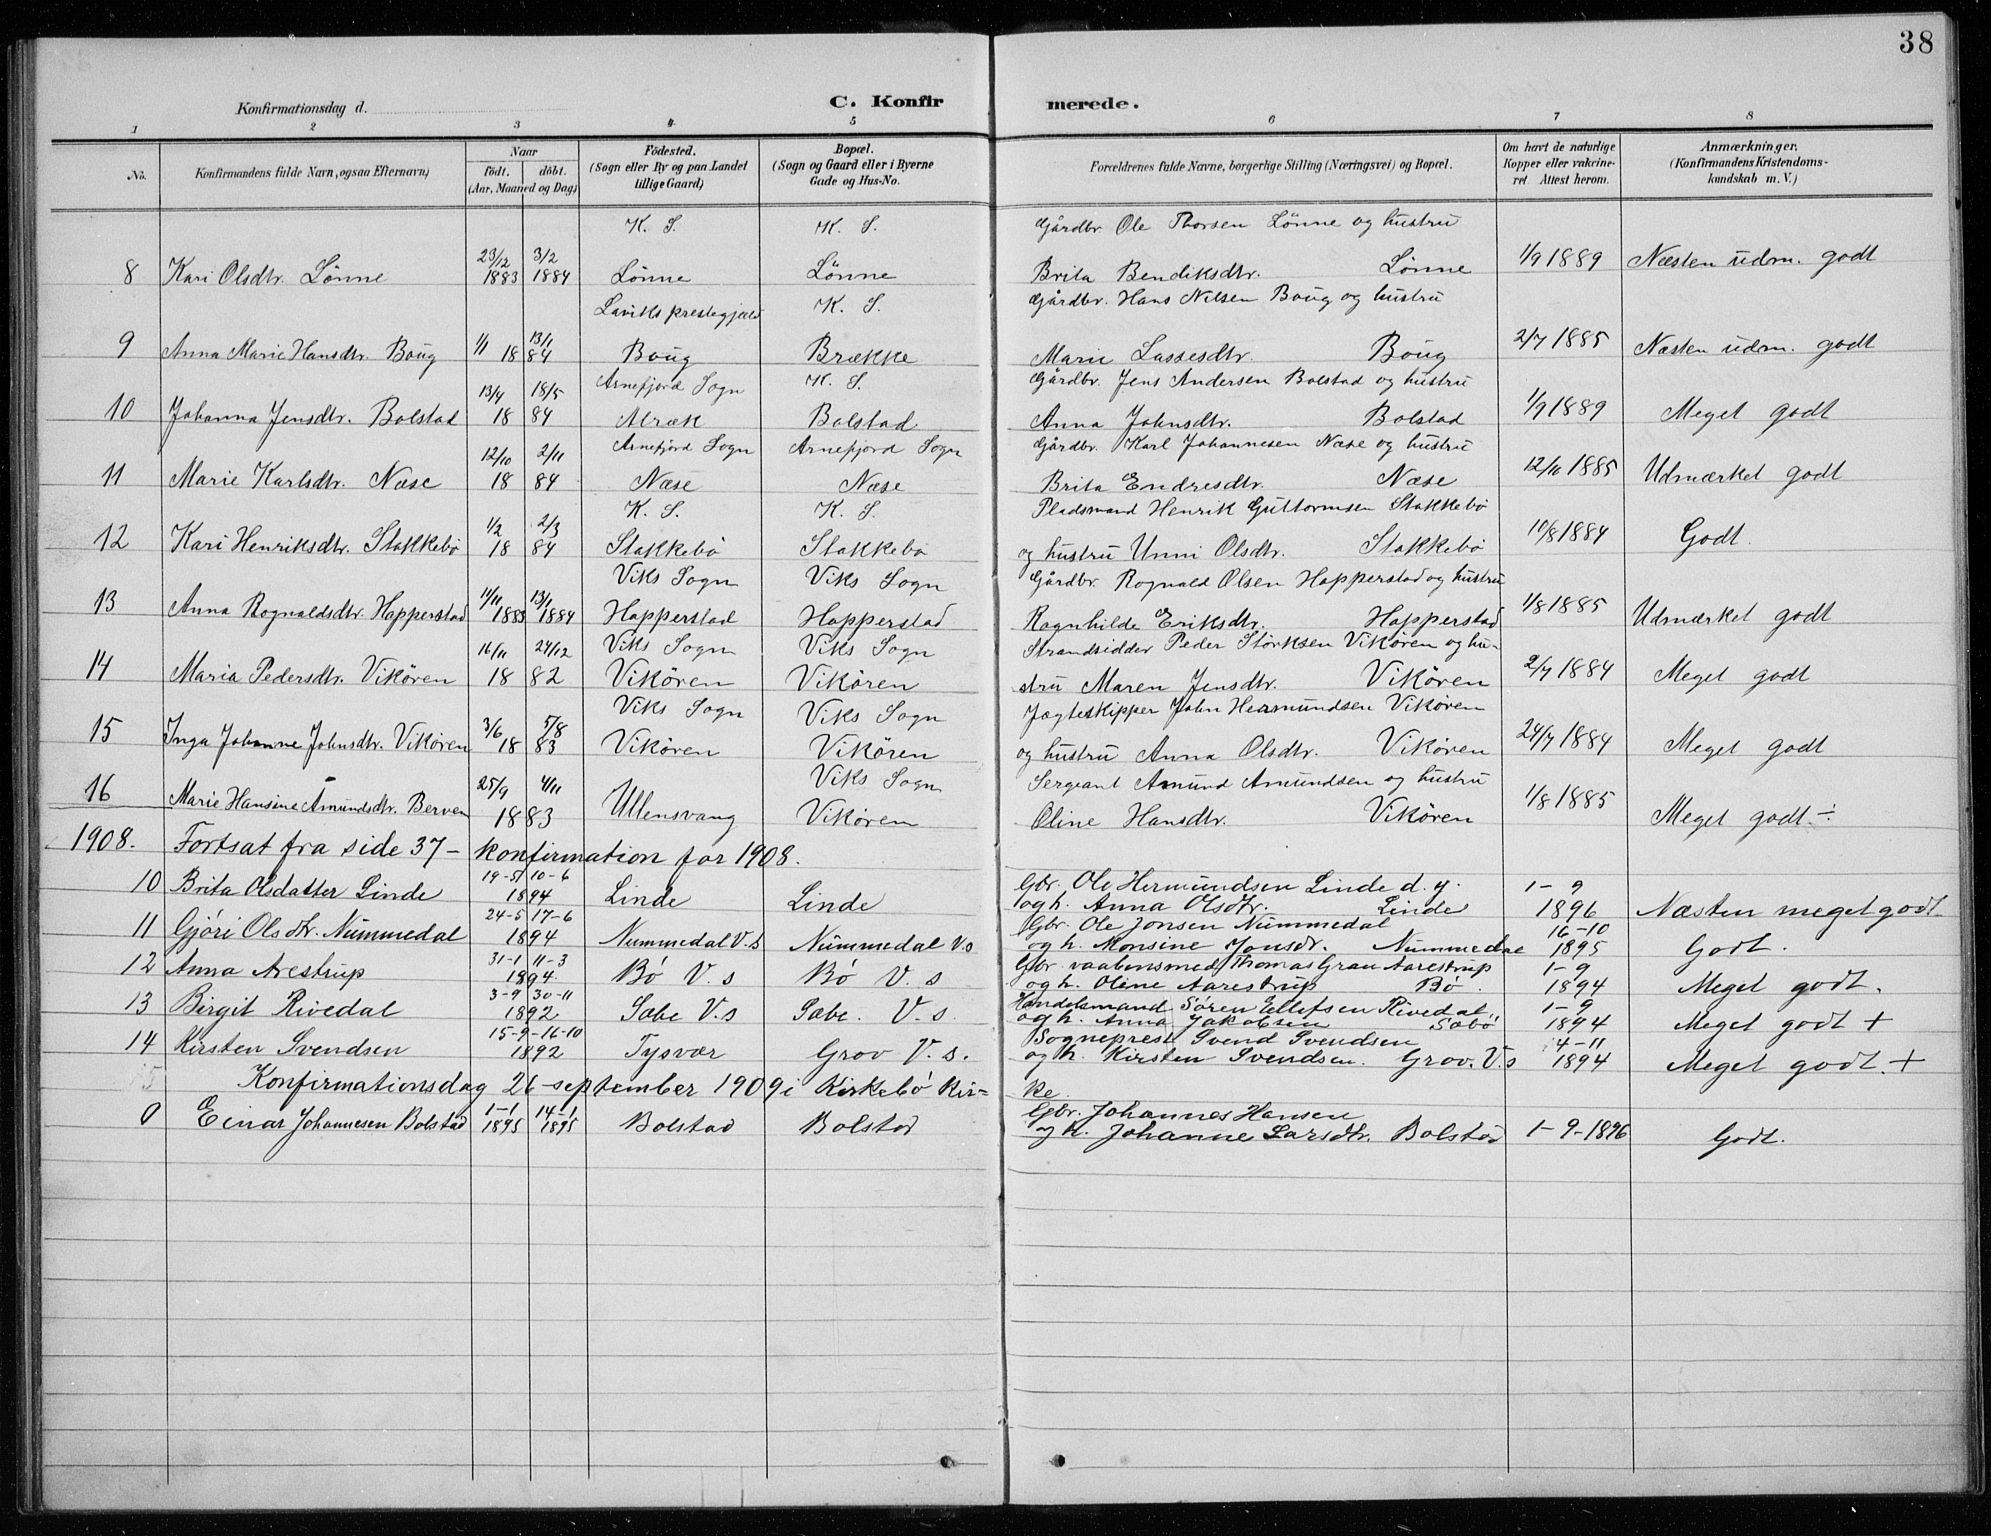 38
Konfirmationsdag d.
C. Konfirmerede.
1 2 3 4 5 6 7 8
No.
Konfirmandens fulde Navn, ogsaa Efternavn)
Naar
födt. döbt.
(Aar, Maaned og Dag)
Födested.
(Sogn eller By og paa Landet
tillige Gaard)
Bopæl.
(Sogn og Gaard eller i Byerne
Gade og Hus-No.
Forældrenes fulde Navne, borgerlige Stilling (Næringsvei) og Bopæl.
Om havt de naturlige
Kopper eller vakcine-
ret. Attest herom.
Anmærkninger.
(Konfirmandens Kristendoms-
kundskab m. V.)
K. S. K. S. Gårdbr. Ole Thorsen Lönne og hustru
8 Kari Olsdtr. Lönne 23/12 1883 3/2 1884 Lönne Lönne Brita Bendiksdtr. Lönne 1/9 1889 Næsten udm. godt
Laviks prestegjæld K. S. Gårdbr. Hans Nilsen Boug og hustru
9 Anna Marie Hansdtr. Boug 1/1 13/1 1884 Boug Brække Marie Lassesdtr. Boug 2/7 1885 Næsten udm. godt
Arnefjord Sogn K. S. Gårdbr. Jens Andersen Bolstad og hustru
10 Johanna Jensdtr. Bolstad 13/4 18/5 1884 Alræk Bolstad Anna Johnsdtr. Bolstad 1/9 1889 Meget godt
Arnefjord Sogn Arnefjord Sogn Gårdbr. Karl Johannesen Næse og hustru
11 Marie Karlsdtr. Næse 12/10 2/11 1884 Næse Næse Brita Endresdtr. Næse 12/10 1885 Udmærket godt
K. S. K. S. Pladsmand Henrik Guttormsen Stakkebö
12 Kari Henriksdtr. Stakkebö 1/2 2/3 1884 Stakkebö Stakkebö og hustru Unni Olsdtr. Stakkebö 10/8 1884 Godt.
Viks Sogn Viks Sogn Gårdbr. Rognald Olsen Hopperstad og hustru
13 Anna Rognaldsdtr. Hopperstad 11/11 1883 13/1 1884 Hopperstad Hopperstad Ragnhilde Eriksdtr. Hopperstad 1/8 1885 Udmærket godt
Viks Sogn Viks Sogn Strandsidder Peder Störksen Vikören og hu-
14 Maria Pedersdtr. Vikören 16/11 24/12 1882 Vikören Vikören stru Maren Jensdtr. Vikören 2/7 1884 Meget godt
Viks Sogn Viks Sogn Jægteskipper John Hermundsen Vikören
15 Inga Johanne Johnsdtr. Vikören 3/6 5/8 1883 Vikören Vikören og hustru Anna Olsdtr. Vikören 24/7 1884 Meget godt
Viks Sogn Sergeant Amund Amundsen og hustru
16 Marie Hansine Amundsdtr. Berven 25/9 4/11 1883 Ullensvang Vikören Oline Hansdtr. Vikören 1/8 1885 Meget godt ÷
1908. Fortsat fra side 37 - konfirmation for 1908.
10 Brita Olsdatter Linde 19-5 10-6 1894 Linde Linde Gbr. Ole Hermundsen Linde d. y.
og h. Anna Olsdtr. Linde 1-9 1896 Næsten meget godt
11 Gjöri Olsdtr. Nummedal 24-5 17-6 1894 Nummedal V.s Nummedal V.s Gbr. Ole Jonsen Nummedal
og h. Monsine Jonsdr. Nummedal 16-10 1895 Godt.
12 Anna Arestrup 31-1 11-3 1894 Bö V. s Bö V. s Gbr. vaabensmed Thomas Grau Aarestrup
og h. Oline Aarestrup Bö 1-9 1894 Meget godt.
13 Birgit Rivedal 3-9 30-11 1892 Sæbe V.s Sæbe. V. s. Handelsmand Sören Ellefsen Rivedal
og h. Anna Jakobsen Säbö 1-9 1894 Meget godt +
14 Kirsten Svendsen 15-9-16-10 1892 Tysvær Grov V. s. Sogneprest Svend Svendsen
og h. Kirsten Svendsen. Grov. V.s 4-11 1894 Meget godt. +
Konfirmationsdag 26 september 1909 i Kirkebö Kir=
ke.
0 Einar Johannesen Bolstad 1-1 1895 14-1 1895 Bolstad Bolstad Gbr. Johannes Hansen
og h. Johanne Larsdtr. Bolstad 1-9-1896 Godt.